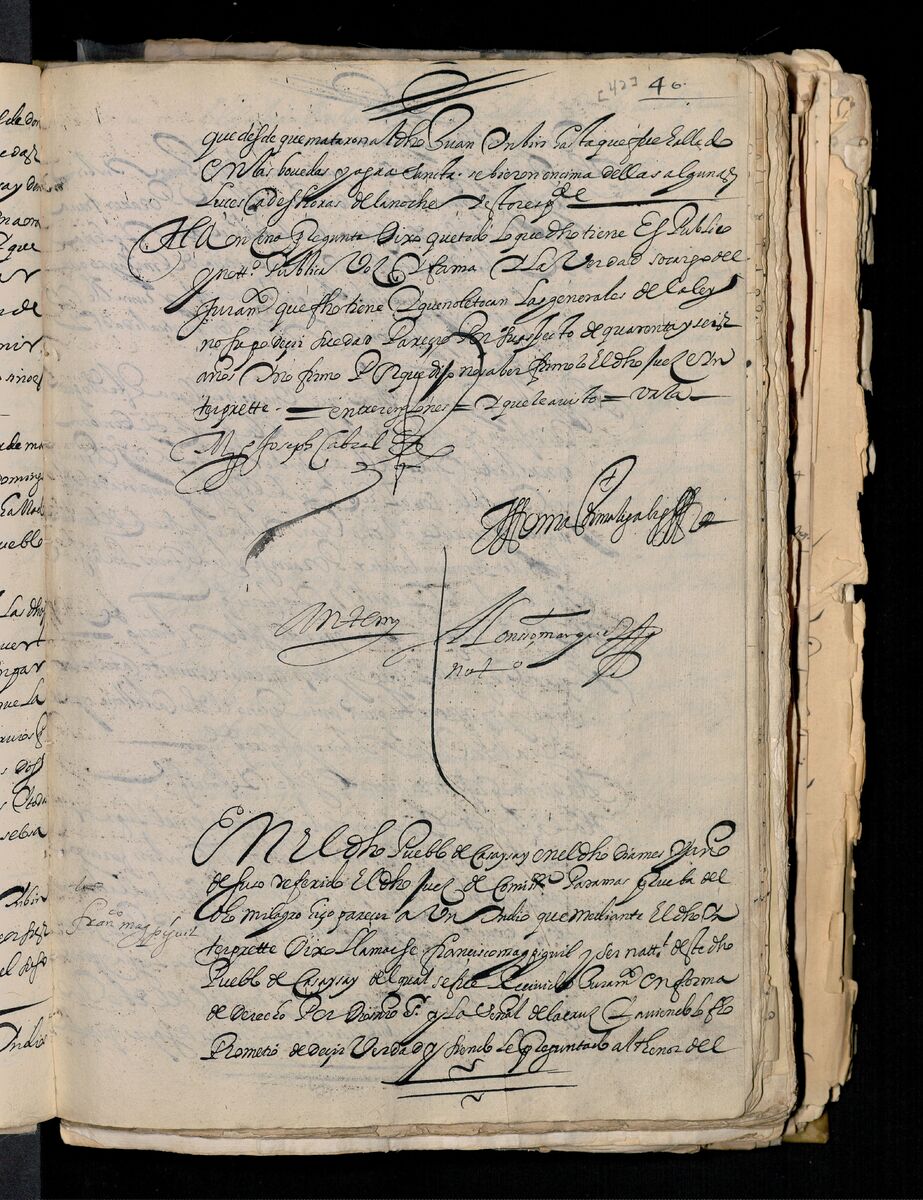 [42] 40
que desde que mataron al dho Juan Inbin hasta que fue hallado
en las bouedas y agra sancta se bieron encima dellas algunas
luces a deshoras de la noche
A la on sena Pregunta Dixo que todo lo que dho tiene Es Publico
y nott.º Publica Voz E fama Y La Verdad so cargo del
Juram.º que fho tiene Y que no le tocan Las generales de la ley
no supo decir su edad Parecio Por su aspecto de quarenta y seis
años Y no firmo Porque dijo no saber firmolo El dho Juez E yn
terprette = entrerenglones = = Vala
M.º Joseph Cabral
Antemy Alonsso marques
not.º
En el dho Pueblo de Casaysay en el dho Dia mes y año
de suso referido El dho Juez de Comiss.n Para mas prueba del
dho milagro hiço parecer a Un Yndio que mediante El dho yn
terprette Dixo llamarse francisco magpiguil y ser natt.l deste dho
Pueblo de Casaysay del qual se fue Recivido Juram.º en forma
de Derecho Por Dios nro S.r y La Señal de la cruz E haviendolo fho
Prometio de decir Verdad y siendole Preguntado al thenor del
t.º
fran.co magpiguil